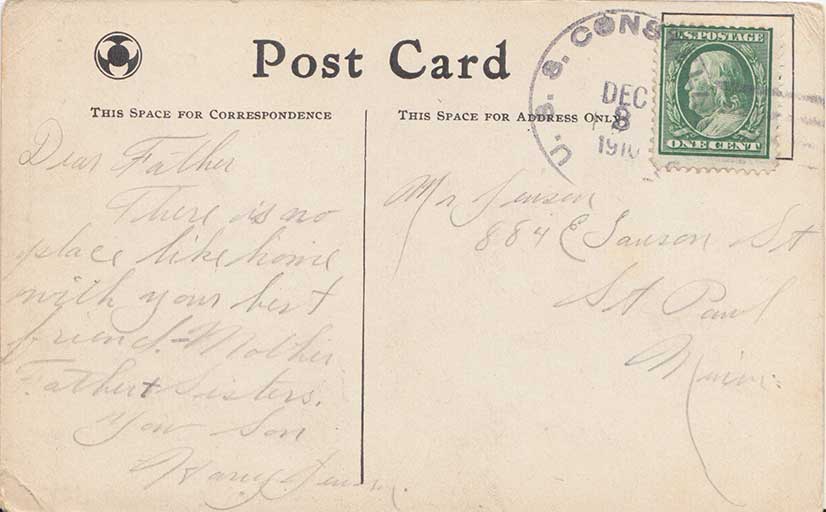 Post Card
THIS SPACE FOR CORRESPONDENCE
THIS SPACE FOR ADDRESS ONLY
U.S.S. CONS
DEC
8
1910
U.S. POSTAGE
ONE CENT
Dear Father
There is no
place like home
with your best
friend - Mother
Father + Sisters.
Your Son
Harry Jenson.
Mr Jenson
884 E St
St Paul
Minn.